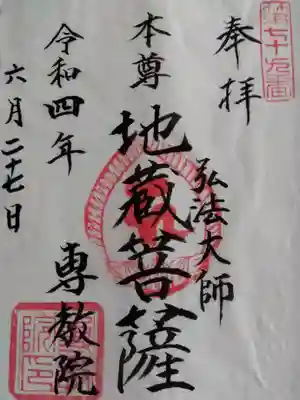 奉拝
第七十九番
弘法大師
本尊
地蔵菩薩
令和四年
六月二十七日
専教院